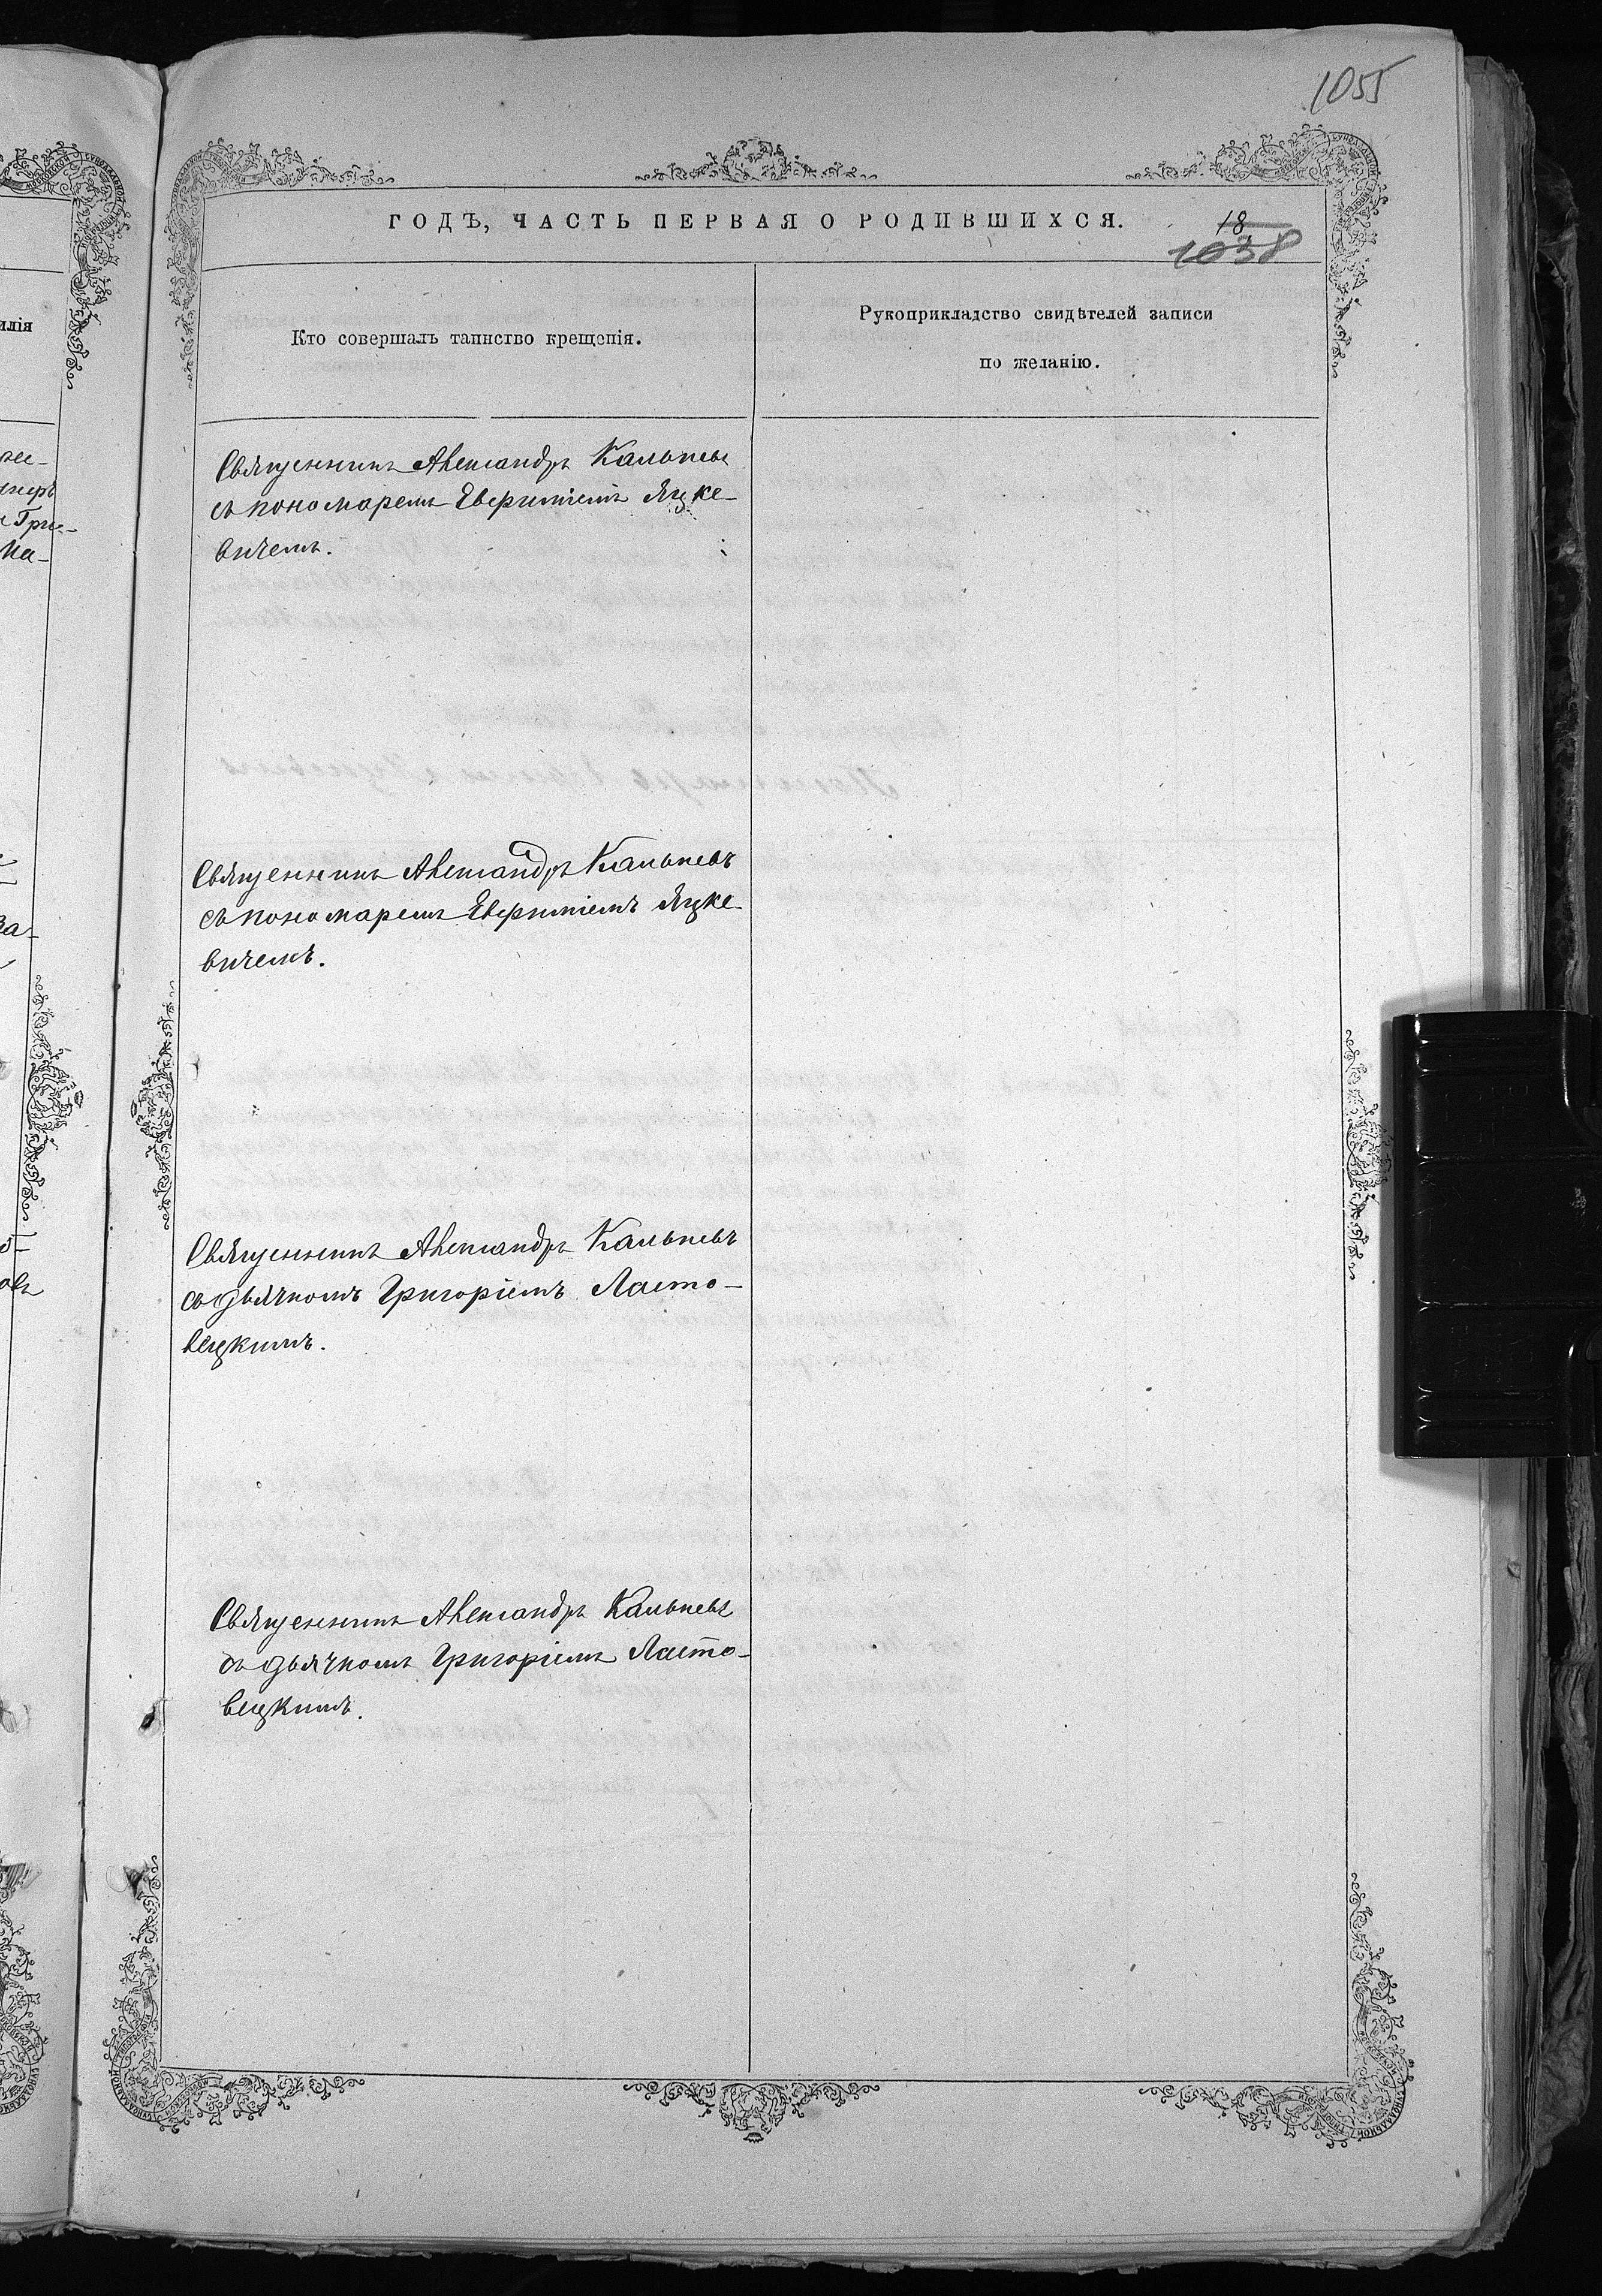 1055
ГОДЪ, ЧАСТЬ ПЕРВАЯ О РОДИВШИХСЯ.
18
1038
Кто совершалъ таинство крещенія.
Рукоприкладство свидѣтелей записи
по желанію.
Священникъ Александръ Кальневъ
съ пономаремъ Евфиміемъ Яцке-
вичемъ.
Священникъ Александръ Кальневъ
съ пономаремъ Евфиміемъ Яцке-
вичемъ.
Священникъ Александръ Кальневъ
съ дьячкомъ Григоріемъ Ласто-
вецкимъ.
Священникъ Александръ Кальневъ
съ дьячкомъ Григоріемъ Ласто-
вецкимъ.
илія